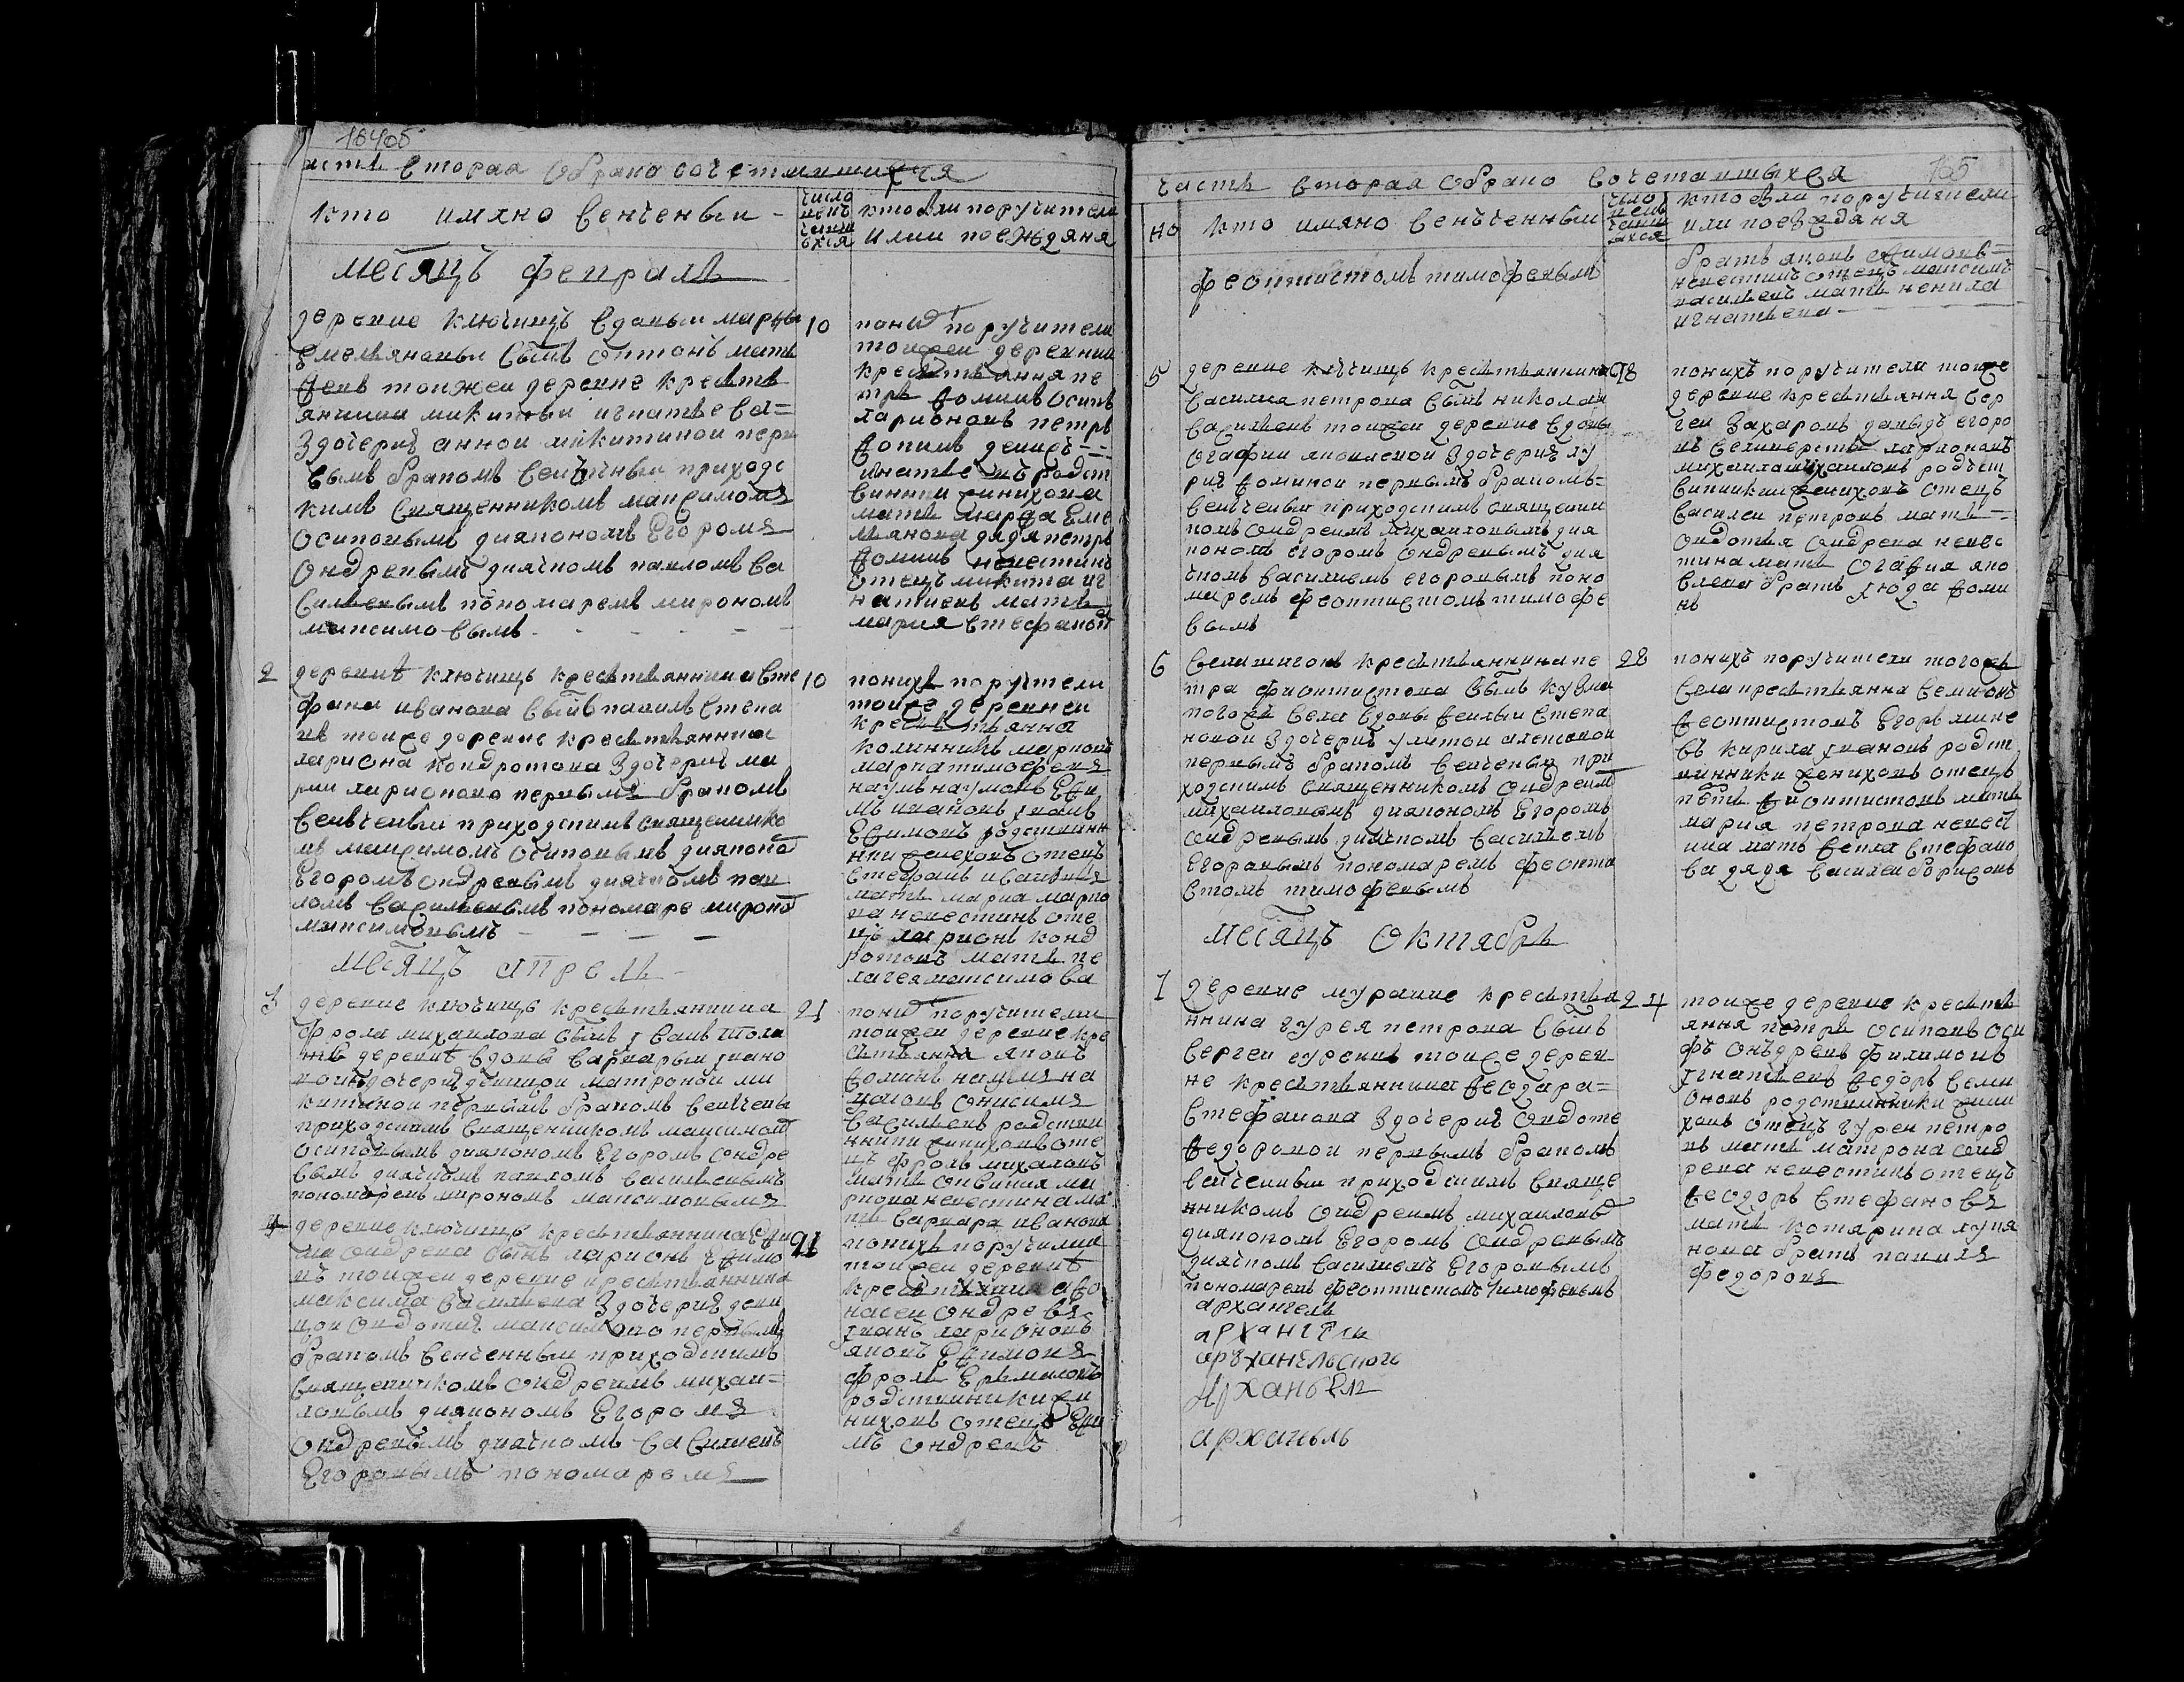 часть вторая обрако сочетавшихся
кто имяно венчены
число
венч
кто были поручители
или поежжяня
месяцъ февраль
деревне ключищъ вдовы марфы
емельяновы сынъ онтонъ мать
веевъ тоижеи деревне крестья
никиты игнатьева=
здочерию анною микитиною перв
вымъ бракомъ венчены приходс
кимъ священникомъ максимомъ
осиповымъ дияконом егоромъ
ондревымъ диячкомъ павломъ ва
сильевымъ пономаремъ мирономъ
максимовымъ
10
поних поручители
тоижеи деревни
крестьяння пе
тръ фоминъ осипъ
ларионовъ петръ
мать марфа еме
льянова дядя петръ
фоминъ невестинъ
отецъ микита иг
натиевъ мать
мария стефанов
2
деревне ключищъ крестьяннина сте
фана иванова сынъ павилъ степа
въ тоиже деревне крестьяннина
лариона кондротова здочерию ма
рии ларионова первымъ бракомъ
венчены приходскимъ священнико
мъ максимомъ осиповымъ дияконо
егоромъ ондревымъ диячкомъ пав
ломъ васильевымъ пономаре мироно
максимовымъ
10
понихъ поручители
тоиже деревнеи
крестьянна
наумъ наумовъ ефи
мъ ивановъ иванъ
ефимовъ родственн
ики женеховъ отецъ
стефанъ ивановъ
мать мариа марко
ва невестинъ оте
цъ ларионъ конд
ротовъ мать пе
лагея максимова
месяцъ апрель
3
деревне ключищъ крестьяннина
фрола михаилова сынъ иванъ тоеи
же деревне вдовы варвары ивано
вои здочерию девицои матроною ми
китиною первымъ бракомъ венчены
приходскимъ священникомъ максимом
осиповымъ дияконом егоромъ ондре
вымъ диячкомъ павломъ васильевымъ
пономаремъ мирономъ максимовымъ
21
поних поручители
тоижеи деревне кре
стьянна яковъ
фоминъ наумъ на
умовъ онисимъ
васильевъ родстве
нники женихов оте
цъ фролъ михаиловъ
невестина ма
ть варвара иванова
4
деревне ключищъ крестьяннина ефи
ма ондрева сынъ ларионъ ефимо
въ тоижеи деревне крестьяннина
максима васильева здочерию деви
цои овдотию максимова первымъ
бракомъ венченны приходскимъ
священникомъ ондреимъ михаи=
ловымъ дияконом егоромъ
ондревымъ диячкомъ василиемъ
егоровымъ пономаремъ
21
понихъ поручители
тоижеи деревне
крестьянна афо
насеи ондревъ
иванъ ларионовъ
яковъ ефимовъ
фролъ ермиловъ
родственники же
ниховъ отецъ ефи
мъ ондревъ
165
часть вторая обрако сочетавшыхся
но
кто имяно венчены
кто были поручители
или поежжяня
феоктистомъ тимофевымъ
братъ яковъ ефимовъ=
невестинъ отецъ максимъ
василевъ мать ненила
игнатьева
5
деревне ключищъ крестьяннина
василия петрова сынъ николаи
васильевъ тоижеи деревне вдовы
огафии яковлевои здочерию лу
рию фоминои первымъ бракомъ=
венчены приходскимъ священни
комъ ондреимъ михаиловымъ дия
кономъ егоромъ ондревымъ дия
чкомъ василиемъ егоровымъ поно
маремъ феоктистомъ тимофе
вымъ
28
понихъ поручители тоиже
деревне крестьяння сер
геи захаровъ давыдъ егоро
въ селиверстъ ларионовъ
михаила михаиловъ родст
винники жениховъ отецъ
василеи петровъ мать=
овдотия ондрева невес
тина мать огафия яко
влева братъ июда фоми
нъ
6
села шигонь крестьяннина пе
тра фиоктистова сынъ кузма
тогожъ села вдовы феклы степа
новои здочерию улитои алексевои
первымъ бракомъ венчены при
ходскимъ священникомъ ондреим
михаиловымъ дияконом егоромъ
ондревымъ диячкомъ василиемъ
егоровымъ пономаремъ феокти
стомъ тимофевымъ
28
понихъ поручители тогожъ
села крестьянна семионъ
феоктистовъ егоръ мике
въ кирила ивановъ родст
винники жениховъ отецъ
петъ фиоктистовъ мать
мариа петрова невест
ина мать фекла стефано
ва дядя василеи борисовъ
месяцъ октябрь
7
деревне муракие крестья
ннина гурея петрова сынъ
сергеи гуревъ тоиже дерев
не крестьяннина феодора=
стефанова здочерию овдоте
федоровои первымъ бракомъ
венчены приходскимъ свяще
нникомъ ондреимъ михаилов
дияконом егоромъ ондревымъ
диячкомъ василиемъ егоровымъ
пономаремъ феоктистомъ тимофевымъ
24
тоиже деревне крестья
яння петръ осиповъ оси
фъ онъдревъ филимонъ
игнатьевъ федоръ семи
оновъ родствинники жени
ховъ отецъ гуреи петро
въ мать матрона онд
рева невестинъ отецъ
феодоръ стефановъ
мать котярина лукя
нова братъ павилъ
федоровъ
архангель
архангели
архангельского
архангел
архагель